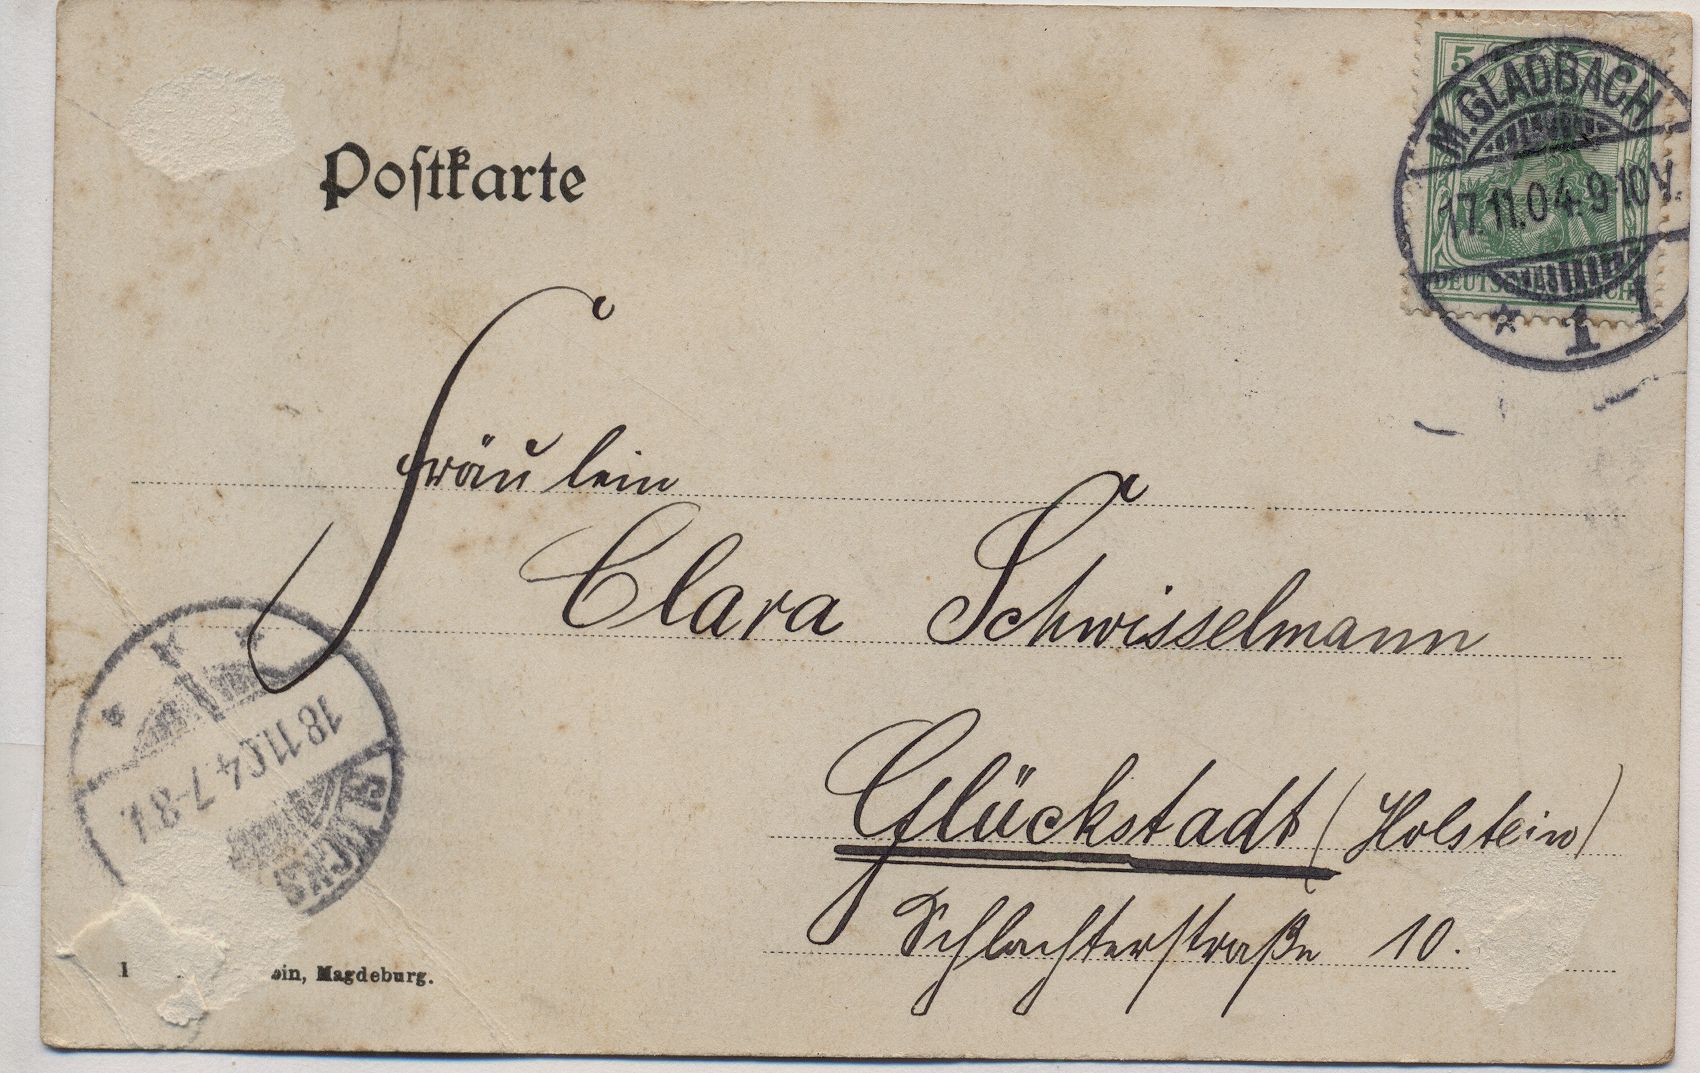 Postkarte
5
M. GLADBACH
17.11.04.9-10V.
* 1 l
DEUTSCHES REICH
Fräulein
Clara Schwisselmann
Glückstadt (Holstein)
Schlachterstraße 10.
18.11.04.7-8V.
GLÜCKS
1
bin, Magdeburg.